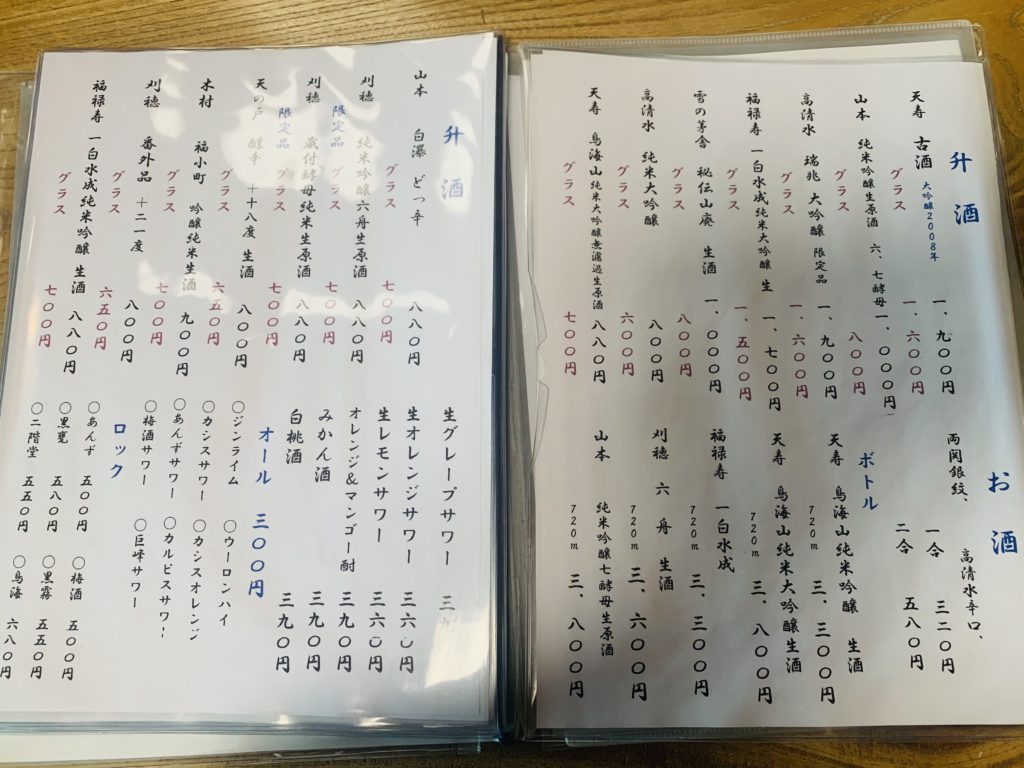 升酒
天寿 古酒 大吟醸2008年 一、九〇〇円
グラス 一、六〇〇円
山本 純米吟醸生原酒 六、七酵母 一、〇〇〇円
グラス 八〇〇円
高清水 瑞兆 大吟醸 限定品 一、九〇〇円
グラス 一、六〇〇円
福禄寿 一白水成純米大吟醸 生 一、七〇〇円
グラス 一、五〇〇円
雪の茅舎 秘伝山廃 生酒 一、〇〇〇円
グラス 八〇〇円
高清水 純米大吟醸 八〇〇円
グラス 六〇〇円
天寿 鳥海山純米大吟醸無濾過生原酒 八八〇円
グラス 七〇〇円
お酒
高清水辛口、
両関銀紋、
一合 三二〇円
二合 五八〇円
ボトル
天寿 鳥海山純米吟醸 生酒
720m 三、三〇〇円
天寿 鳥海山純米大吟醸生酒
720m 三、八〇〇円
福禄寿 一白水成
720m 三、三〇〇円
刈穂 六舟 生酒
720m 三、六〇〇円
山本 純米吟醸七酵母生原酒
720m 三、八〇〇円
升酒
山本 白瀑 どっ辛 八八〇円
グラス 七〇〇円
刈穂 純米吟醸六舟生原酒 八八〇円
限定品 グラス 七〇〇円
刈穂 蔵付酵母純米生原酒 八八〇円
限定品 グラス 七〇〇円
天の戸 醇辛 +十八度 生酒 八〇〇円
グラス 六五〇円
木村 福小町 吟醸純米生酒 九〇〇円
グラス 七〇〇円
刈穂 番外品 +二一度 八〇〇円
グラス 六五〇円
福禄寿 一白水成純米吟醸 生酒 八八〇円
グラス 七〇〇円
生グレープサワー 三九
生オレンジサワー 三六〇円
生レモンサワー 三六〇円
オレンジ&マンゴー酎 三九〇円
みかん酒 三九〇円
白桃酒 三九〇円
オール 三〇〇円
○ジンライム ○ウーロンハイ
○カシスサワー ○カシスオレンジ
○あんずサワー ○カルピスサワー
○梅酒サワー ○巨峰サワー
ロック
○あんず 五〇〇円 ○梅酒 五〇〇円
○黒甕 五八〇円 ○黒霧 五五〇円
○二階堂 五五〇円 ○鳥海 六八〇円